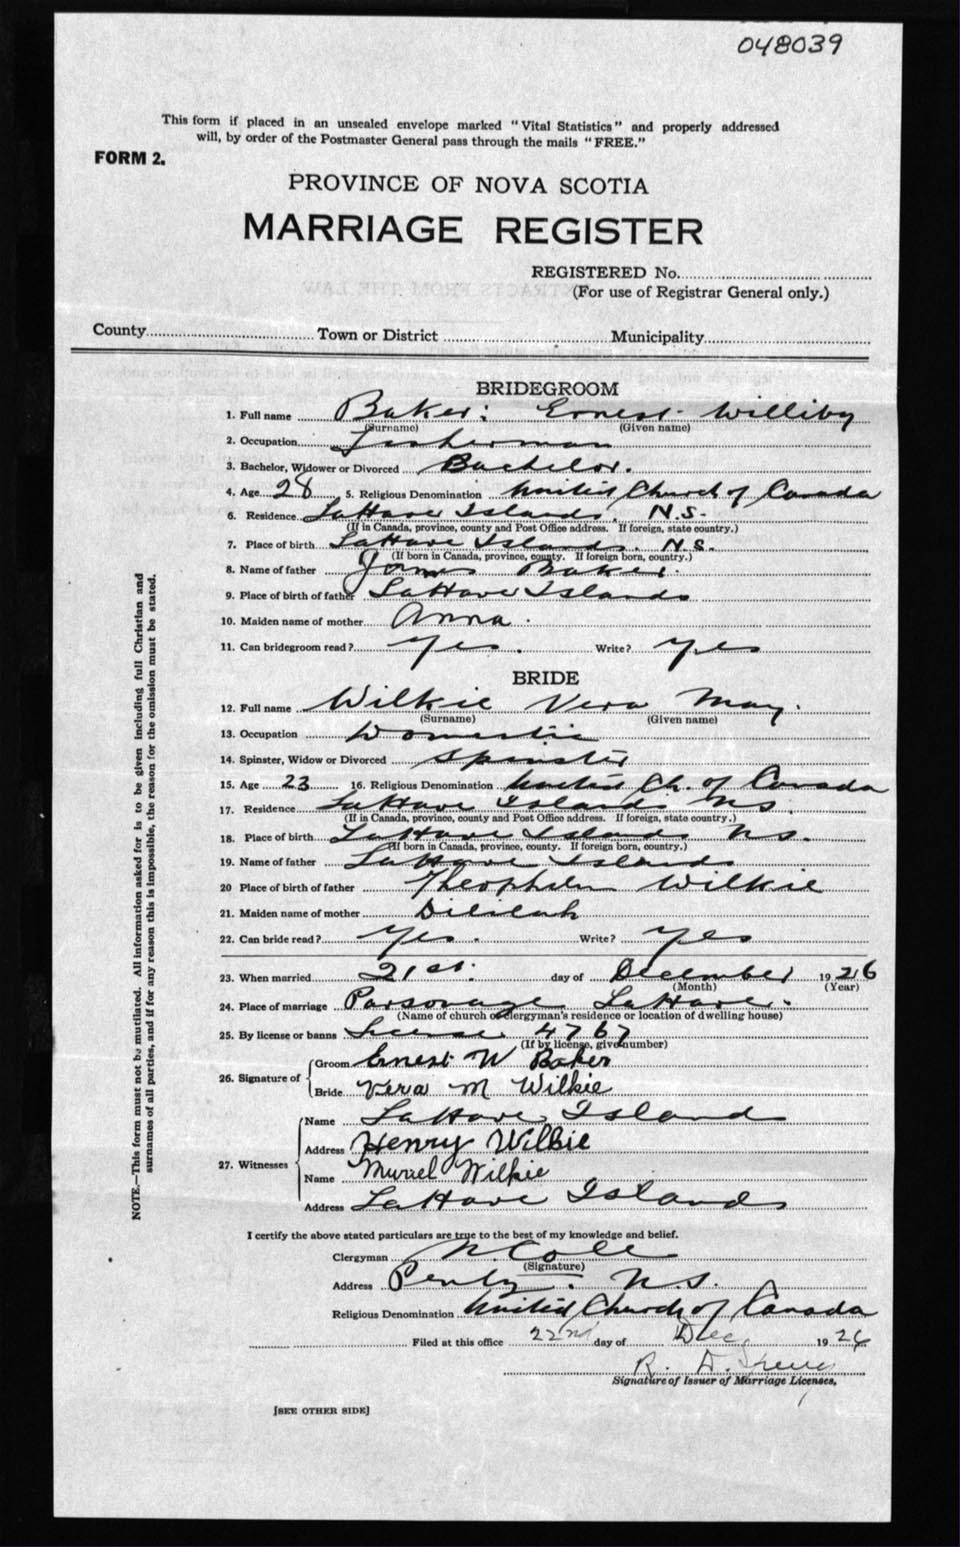 048039
This form if placed in an unsealed envelope marked "Vital Statistics" and properly addressed
will, by order of the Postmaster General pass through the mails "FREE."
FORM 2.
PROVINCE OF NOVA SCOTIA
MARRIAGE REGISTER
REGISTERED No.
(For use of Registrar General only.)
County Town or District Municipality
BRIDEGROOM
1. Full name Baker: Ernest Williby
(Surname) (Given name)
2. Occupation Fisherman
3. Bachelor, Widower or Divorced Bachelor.
4. Age 28 5. Religious Denomination United Church of Canada
6. Residence LaHave Islands, N.S.
(If in Canada, province, county and Post Office address. If foreign, state country.)
7. Place of birth LaHave Islands. N.S.
(If born in Canada, province, county. If foreign born, country.)
8. Name of father James Baker.
9. Place of birth of father LaHave Islands
10. Maiden name of mother Anna.
11. Can bridegroom read? Yes. Write? Yes
BRIDE
12. Full name Wilkie Vera May.
(Surname) (Given name)
13. Occupation Domestic
14. Spinster, Widow or Divorced Spinster
15. Age 23 16. Religious Denomination United Ch. of Canada
17. Residence LaHave Islands N.S.
(If in Canada, province, county and Post Office address. If foreign, state country.)
18. Place of birth LaHave Islands N.S.
(If born in Canada, province, county. If foreign born, country.)
19. Name of father LaHave Islands
20 Place of birth of father Wilkie
21. Maiden name of mother Dililah
22. Can bride read? Yes. Write? Yes
23. When married 21st. day of December 1926
(Month) (Year)
24. Place of marriage Parsonage LaHave.
(Name of church or clergyman's residence or location of dwelling house)
25. By license or banns License 4767
(If by license, give number)
26. Signature of
Groom Ernest W Baker
Bride Vera M Wilkie
27. Witnesses
Name LaHave Island
Address Henry Wilkie
Name Muriel Wilkie
Address LaHave Islands
I certify the above stated particulars are true to the best of my knowledge and belief.
Clergyman Cole
(Signature)
Address N.S.
Religious Denomination United Church of Canada
Filed at this office 22nd day of Dec. 1926
R. D.
Signature of Issuer of Marriage Licenses.
[SEE OTHER SIDE]
NOTE.—This form must not be mutilated. All information asked for is to be given including full Christian and
surnames of all parties, and if for any reason this is impossible, the reason for the omission must be stated.